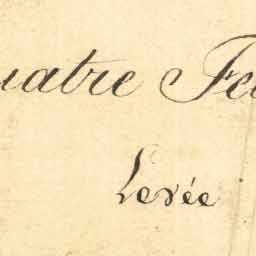 uatre Fe
Levée